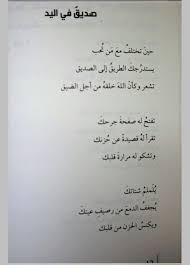 صديقٌ في اليد
حين تختلفُ مع من تُحب
يستدرجكَ الطريقُ إلى الصديق
تشعر وكأنّ الله خلقهُ من أجل الضيق
تفتحُ له صفحةَ جرحكَ
تقرأ لهُ قصيدةً عن حُزنكَ
وتشكو له مرارة قلبكَ
يُلملمُ شتاتكَ
يُجففُ الدمعَ من رصيفِ عينكَ
ويكنسُ الحزن من قلبك